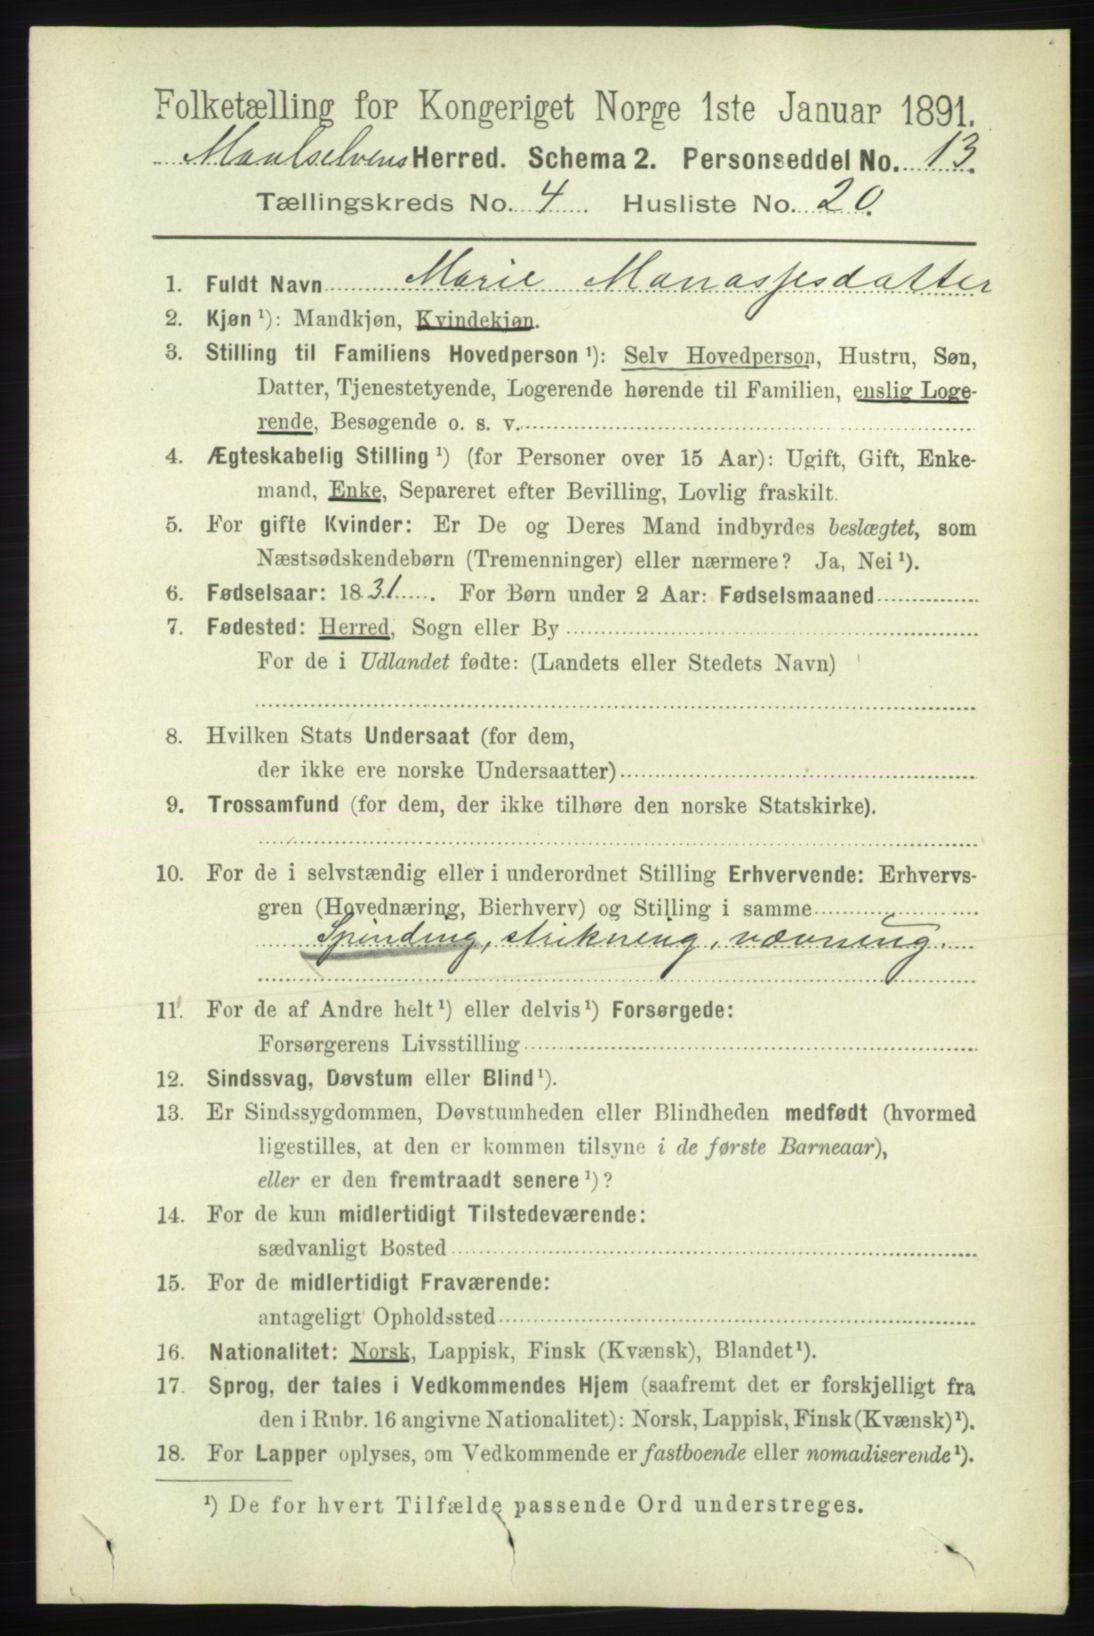 Folketælling for Kongeriget Norge 1ste Januar 1891.
Maalselvens Herred. Schema 2. Personseddel No. 13.
Tællingskreds No. 4 Husliste No. 20.
1. Fuldt Navn Marie Manassesdatter
2. Kjøn ¹): Mandkjøn, Kvindekjøn.
3. Stilling til Familiens Hovedperson ¹): Selv Hovedperson, Hustru, Søn,
Datter, Tjenestetyende, Logerende hørende til Familien, enslig Loge-
rende, Besøgende o. s. v.
4. Ægteskabelig Stilling ¹) (for Personer over 15 Aar): Ugift, Gift, Enke-
mand, Enke, Separeret efter Bevilling, Lovlig fraskilt.
5. For gifte Kvinder: Er De og Deres Mand indbyrdes beslægtet, som
Næstsødskendebørn (Tremenninger) eller nærmere? Ja, Nei ¹).
6. Fødselsaar: 1831. For Børn under 2 Aar: Fødselsmaaned
7. Fødested: Herred, Sogn eller By
For de i Udlandet fødte: (Landets eller Stedets Navn)
8. Hvilken Stats Undersaat (for dem,
der ikke ere norske Undersaatter)
9. Trossamfund (for dem, der ikke tilhøre den norske Statskirke).
10. For de i selvstændig eller i underordnet Stilling Erhvervende: Erhvervs-
gren (Hovednæring, Bierhverv) og Stilling i samme
Spinding, strikning, vævning.
11. For de af Andre helt ¹) eller delvis ¹) Forsørgede:
Forsørgerens Livsstilling
12. Sindssvag, Døvstum eller Blind ¹).
13. Er Sindssygdommen, Døvstumheden eller Blindheden medfødt (hvormed
ligestilles, at den er kommen tilsyne i de første Barneaar),
eller er den fremtraadt senere ¹)?
14. For de kun midlertidigt Tilstedeværende:
sædvanligt Bosted
15. For de midlertidigt Fraværende:
antageligt Opholdssted
16. Nationalitet: Norsk, Lappisk, Finsk (Kvænsk), Blandet ¹).
17. Sprog, der tales i Vedkommendes Hjem (saafremt det er forskjelligt fra
den i Rubr. 16 angivne Nationalitet): Norsk, Lappisk, Finsk (Kvænsk) ¹).
18. For Lapper oplyses, om Vedkommende er fastboende eller nomadiserende ¹).
¹) De for hvert Tilfælde passende Ord understreges.